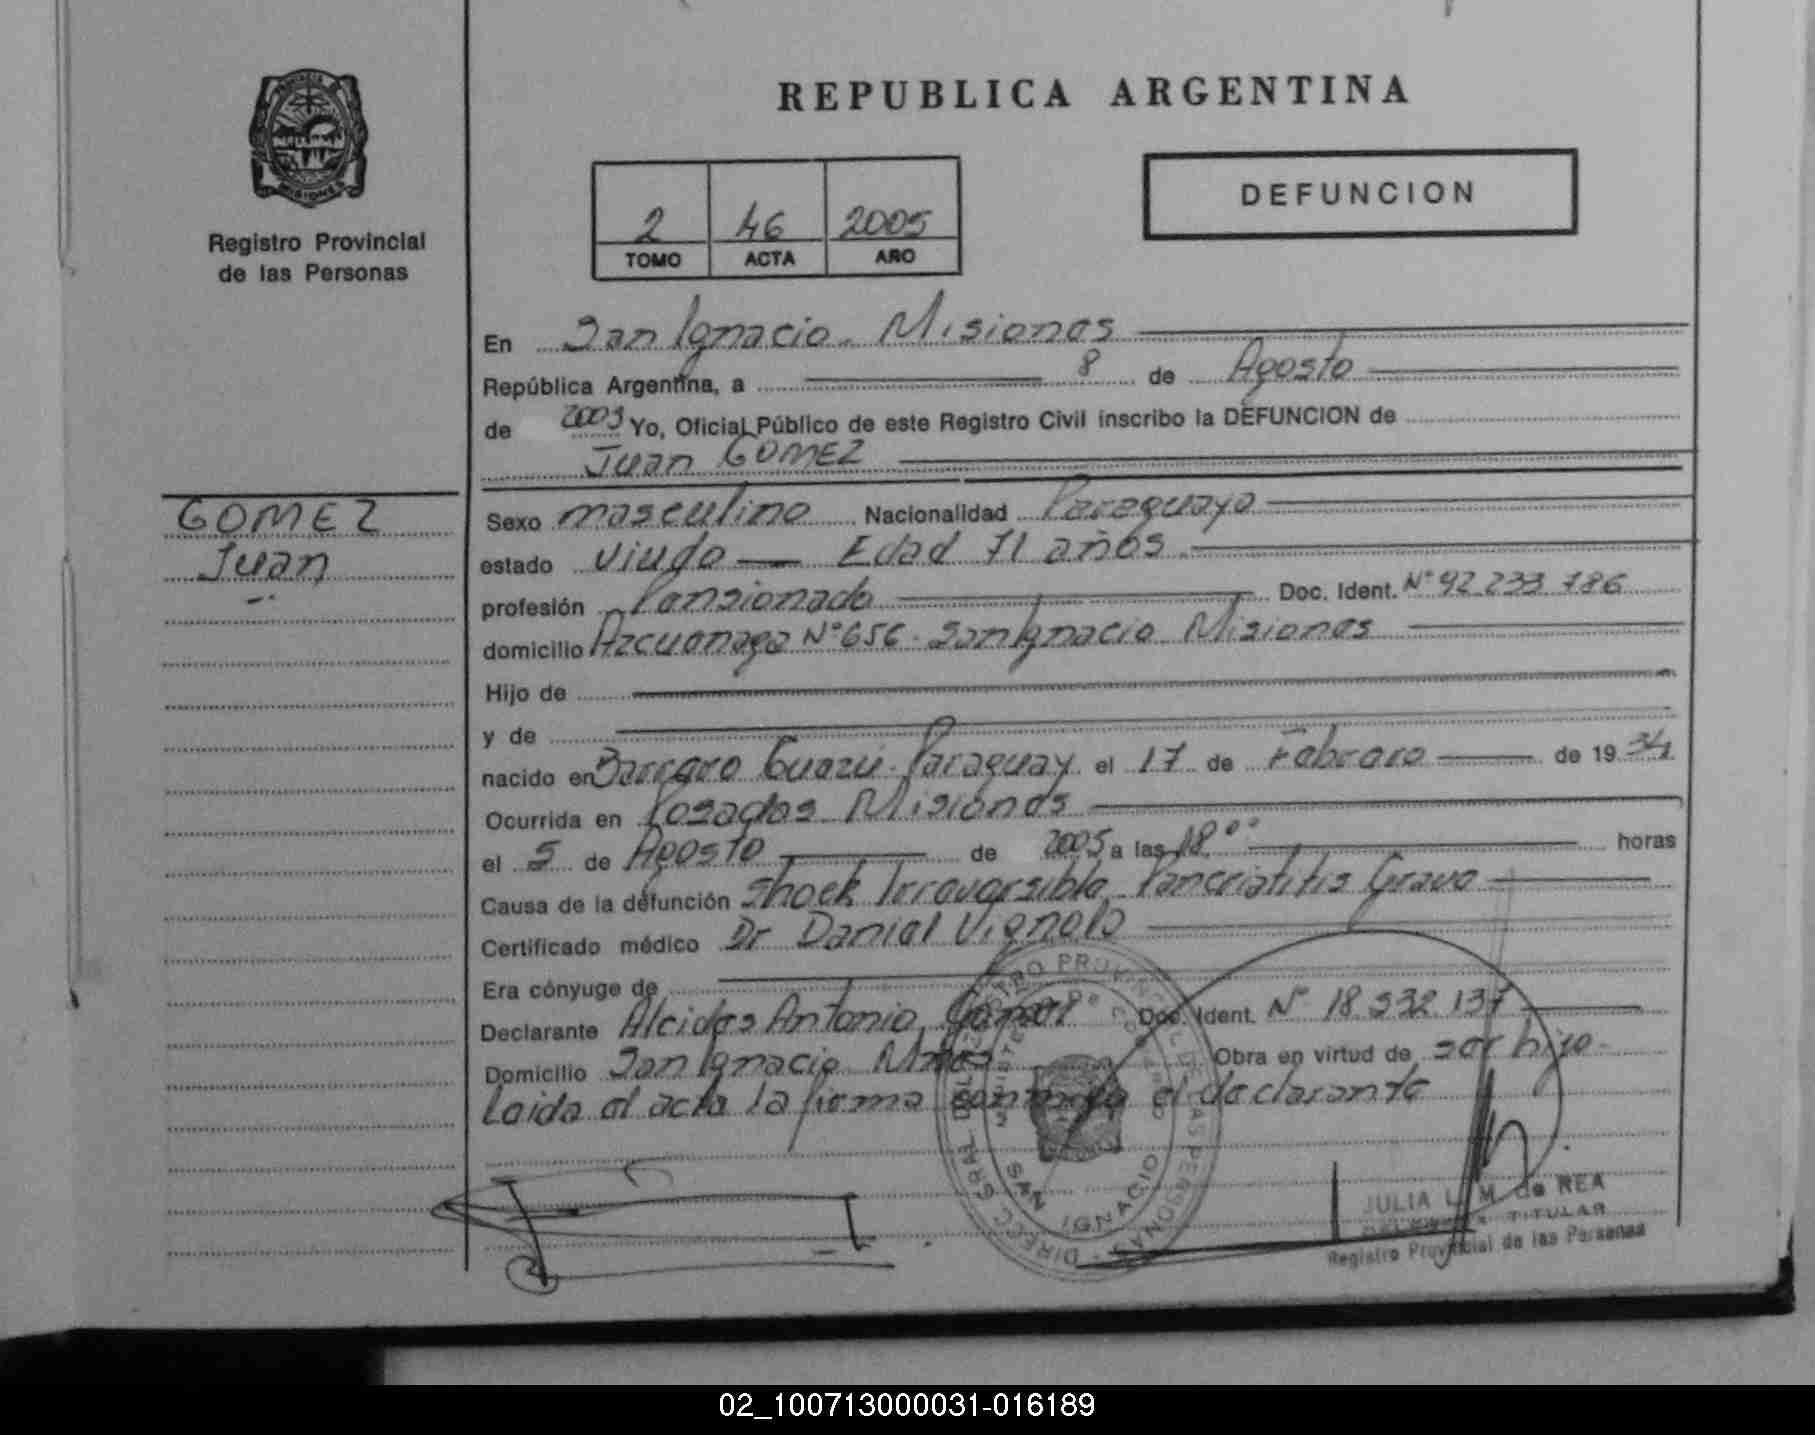 REPUBLICA ARGENTINA
DEFUNCION
2 46 2005
TOMO ACTA AÑO
Registro Provincial
de las Personas
En San Ignacio. Misiones
República Argentina, a 8 de Agosto
de 2005 Yo, Oficial Público de este Registro Civil inscribo la DEFUNCION de
Juan GOMEZ
GOMEZ
Juan
Sexo masculino Nacionalidad Paraguaya
estado Viudo — Edad 71 años
profesión Pensionado Doc. Ident. Nº 92 233 786
domicilio Azcuenaga Nº 656. San Ignacio Misiones
Hijo de
y de
nacido en Barrero Guazu. Paraguay el 17 de Febrero de 19 34
Ocurrida en Posadas Misiones
el 5 de Agosto de 2005 a las 18°° horas
Causa de la defunción Shock Irreversible Pancriatitis Grave
Certificado médico Dr Daniel Vignolo
Era cónyuge de
Declarante Alcides Antonio Gomez Doc. Ident. Nº 18 332 137
Domicilio San Ignacio Mnes Obra en virtud de ser hijo
Leida el acta la firma conmigo el declarante
DIREC. GRAL. DEL REGISTRO PROVINCIAL DE LAS PERSONAS
MINISTERIO DE GOBIERNO
SAN IGNACIO
JULIA L. M. de REA
TITULAR
Registro Provincial de las Personas
02_100713000031-016189